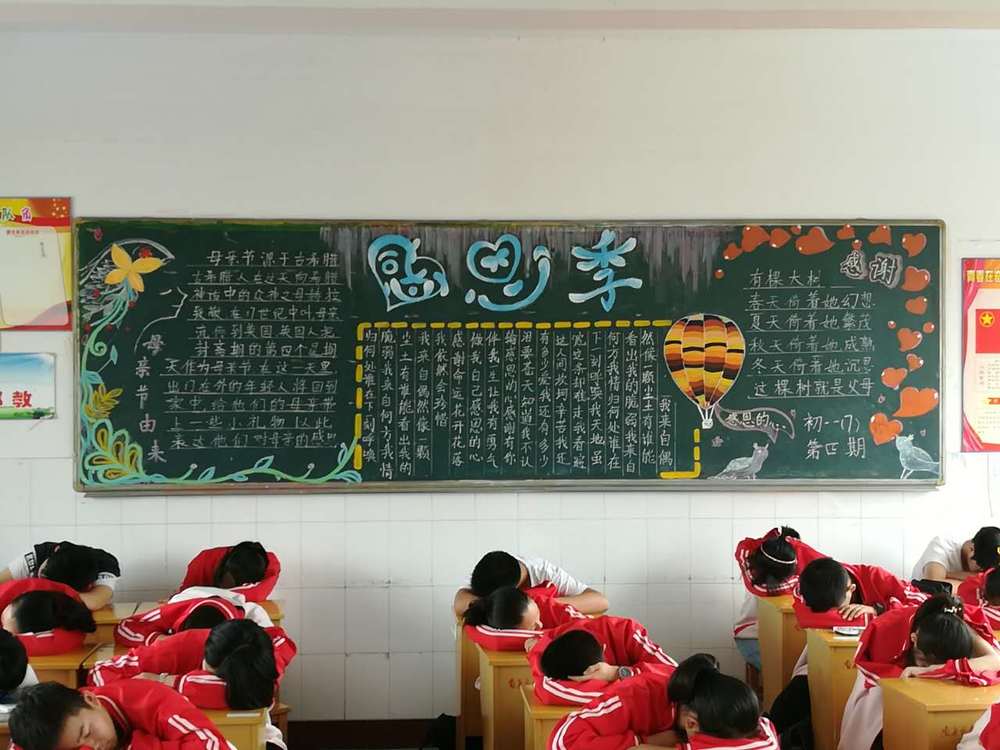 感恩季
母亲节源于古希腊
古希腊人在这一天向希腊
神话中的众神之母赫拉
致敬在17世纪中叶母亲
流传到英国英国人把
封斋期的第四个星期
天作为母亲节在这一天里
出门在外的年轻人将回到
家中,给他们的母亲带
上一些小礼物
母亲节由来
《我来自偶
然像一颗尘土有谁能
看出我的脆弱我来自
何方我情归何处谁在
下一刻呼唤我天地虽
宽这条路却难走我看遍
这人间坎坷辛苦我还
有多少爱我还有多少
泪要苍天知道我不认
输感恩的心感谢有你
伴我一生让我有勇气
做我自己感恩的心
感谢命运花开花落
我依然会珍惜
我来自偶然像一颗
尘土有谁能看出我的
脆弱我来自何方我情
归何处谁在下一刻呼唤
感恩的心
感谢
有棵大树
春天倚着她幻想
夏天倚着她繁茂
秋天倚着她成熟
冬天倚着她沉思
这棵树就是父母
初一(7)
第四期